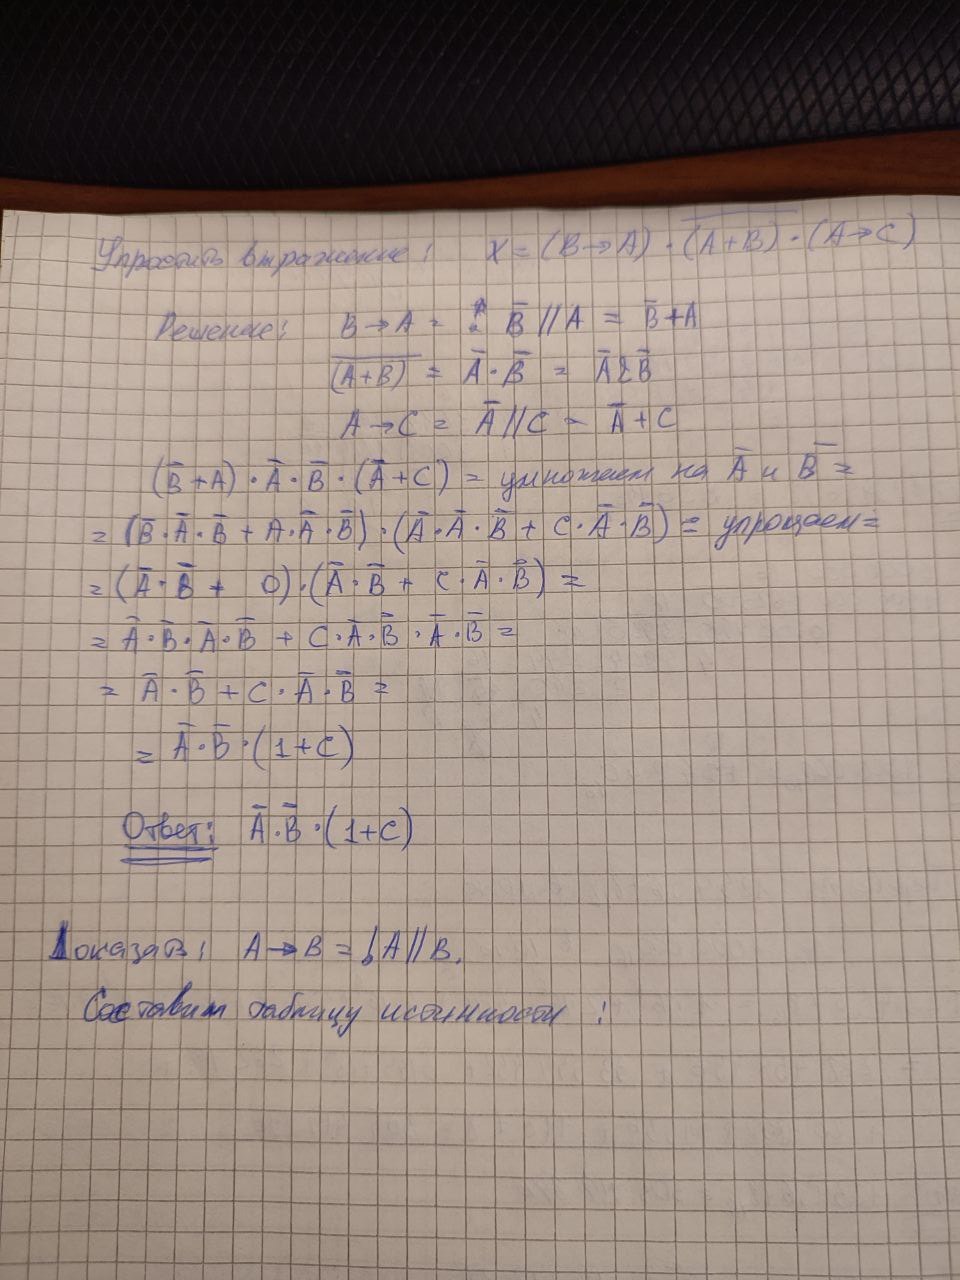 Упростить выражение: X = (B→A) · (A+B)̅ · (A→C)
Решение: B→A = B̅ // A = B̅ + A
(A+B)̅ = A̅ · B̅ = A̅ & B̅
A→C = A̅ // C = A̅ + C
(B̅+A) · A̅ · B̅ · (A̅+C) = умножаем на A̅ и B̅ =
= (B̅·A̅·B̅ + A·A̅·B̅) · (A̅·A̅·B̅ + C·A̅·B̅) = упрощаем =
= (A̅·B̅ + 0) · (A̅·B̅ + C·A̅·B̅) =
= A̅·B̅·A̅·B̅ + C·A̅·B̅·A̅·B̅ =
= A̅·B̅ + C·A̅·B̅ =
= A̅·B̅·(1+C)
Ответ: A̅·B̅·(1+C)
Доказать: A→B = !A//B.
Составим таблицу истинности :